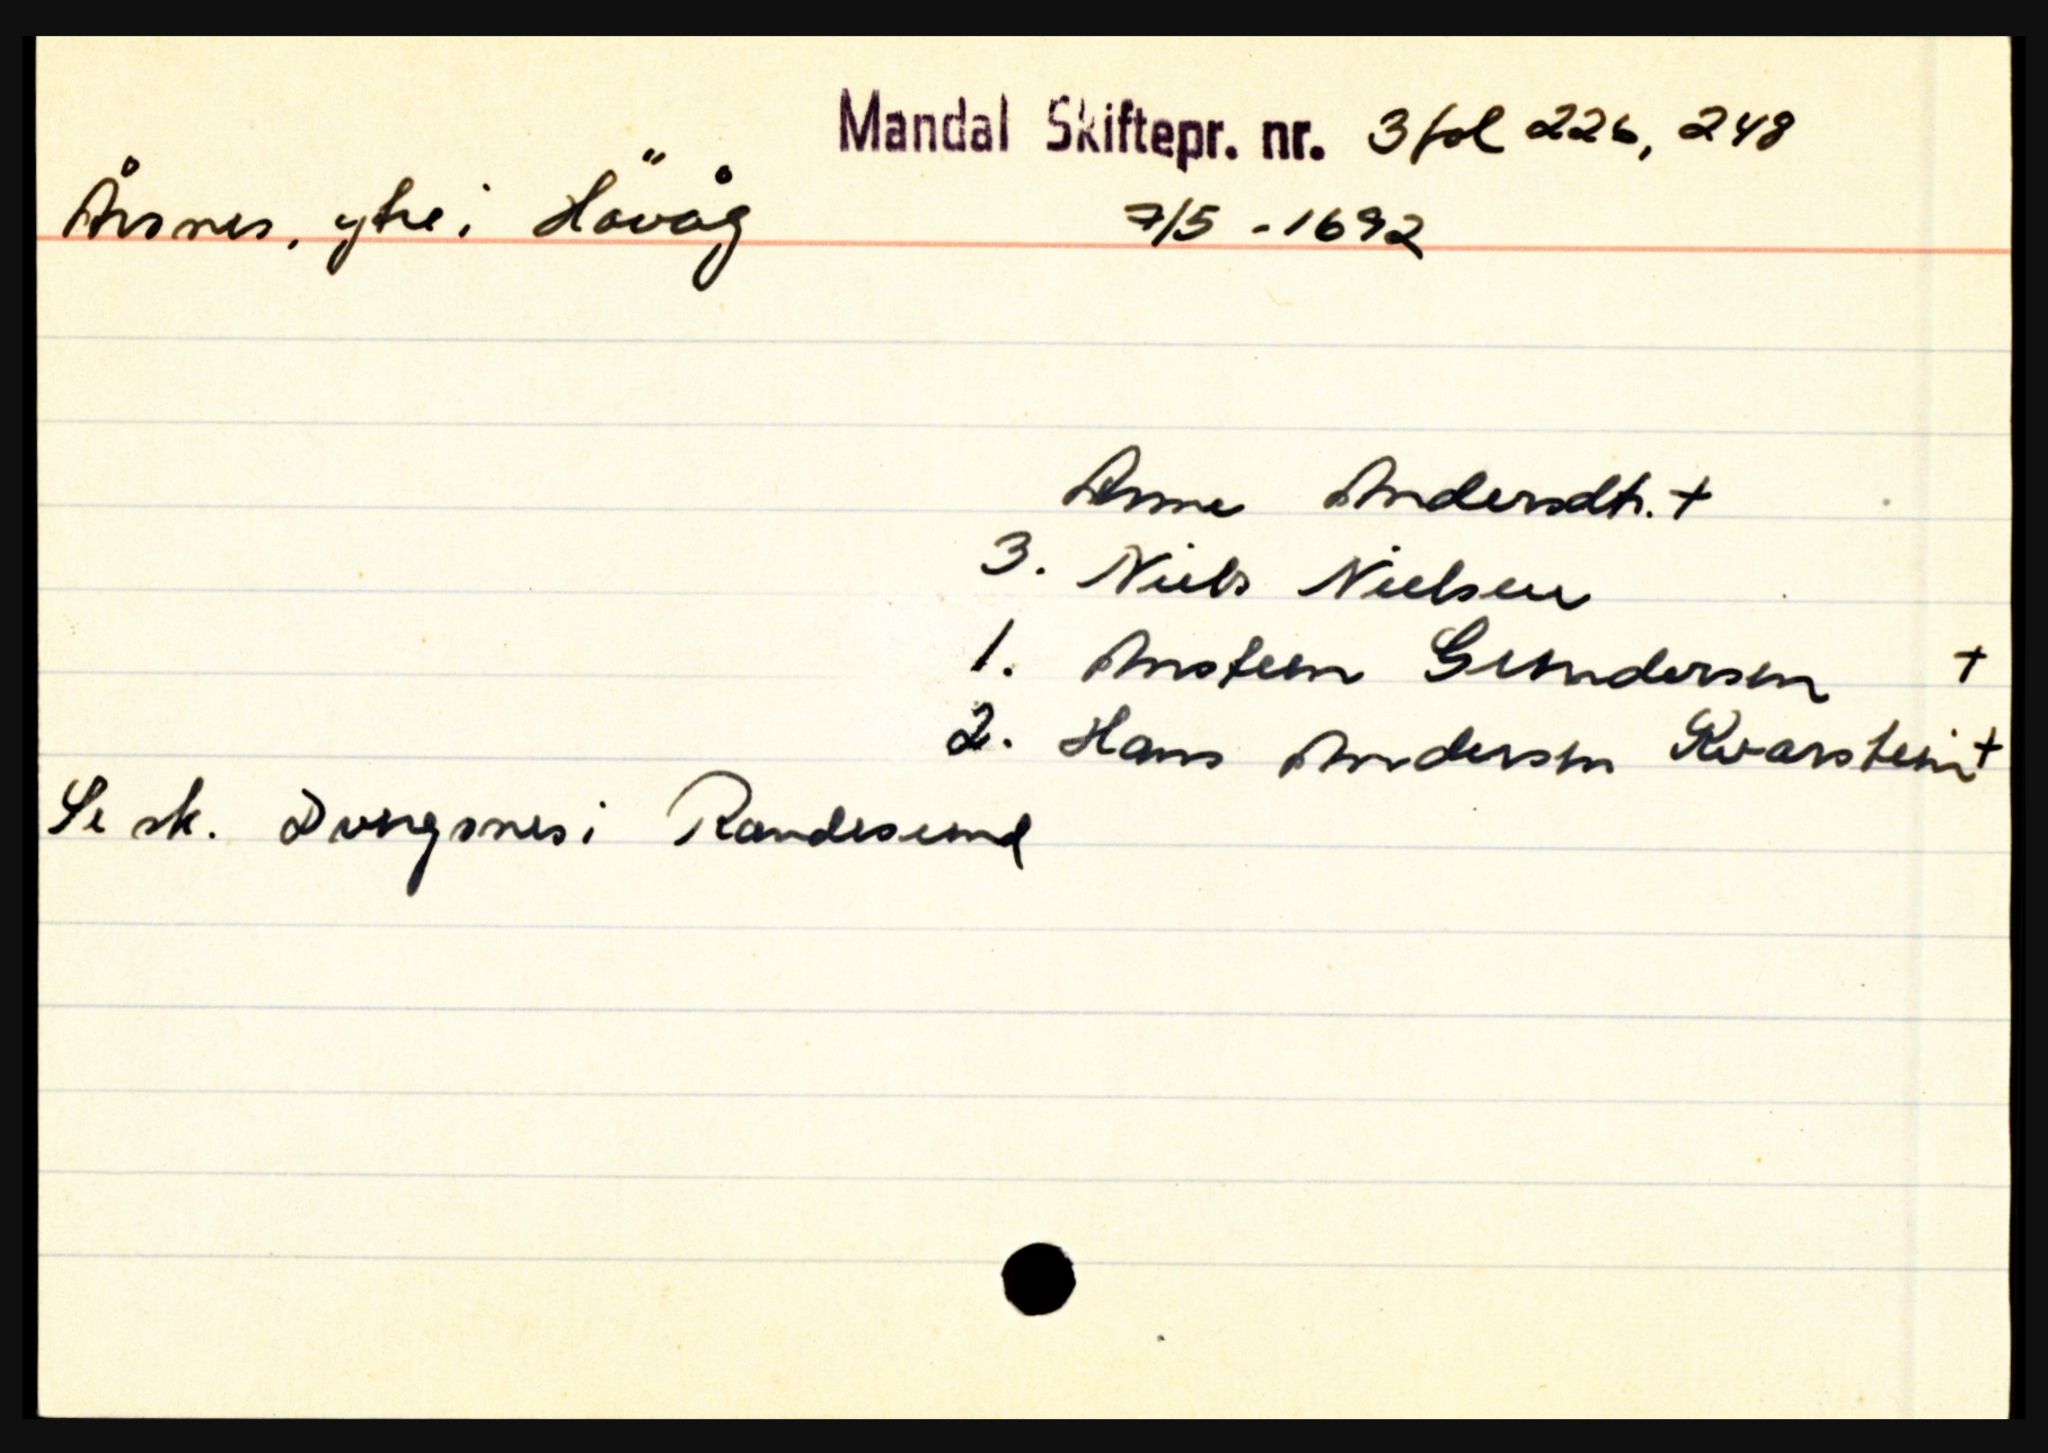 Mandal Skiftepr. nr. 3 fol 226, 248
Årsnes, ytre i Hövåg 7/5 - 1692
Anne Andersdtr. +
3. Niels Nielsen
1. Anstein Gundersen +
2. Hans Andersen Kvarstein +
Se sk. Dvergsnes i Randesund